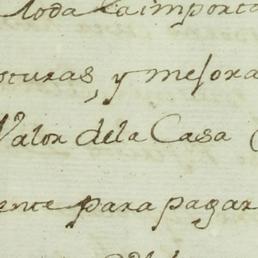 toda la importa
turas, y mejora
Valor dela Casa (
ente para pagar